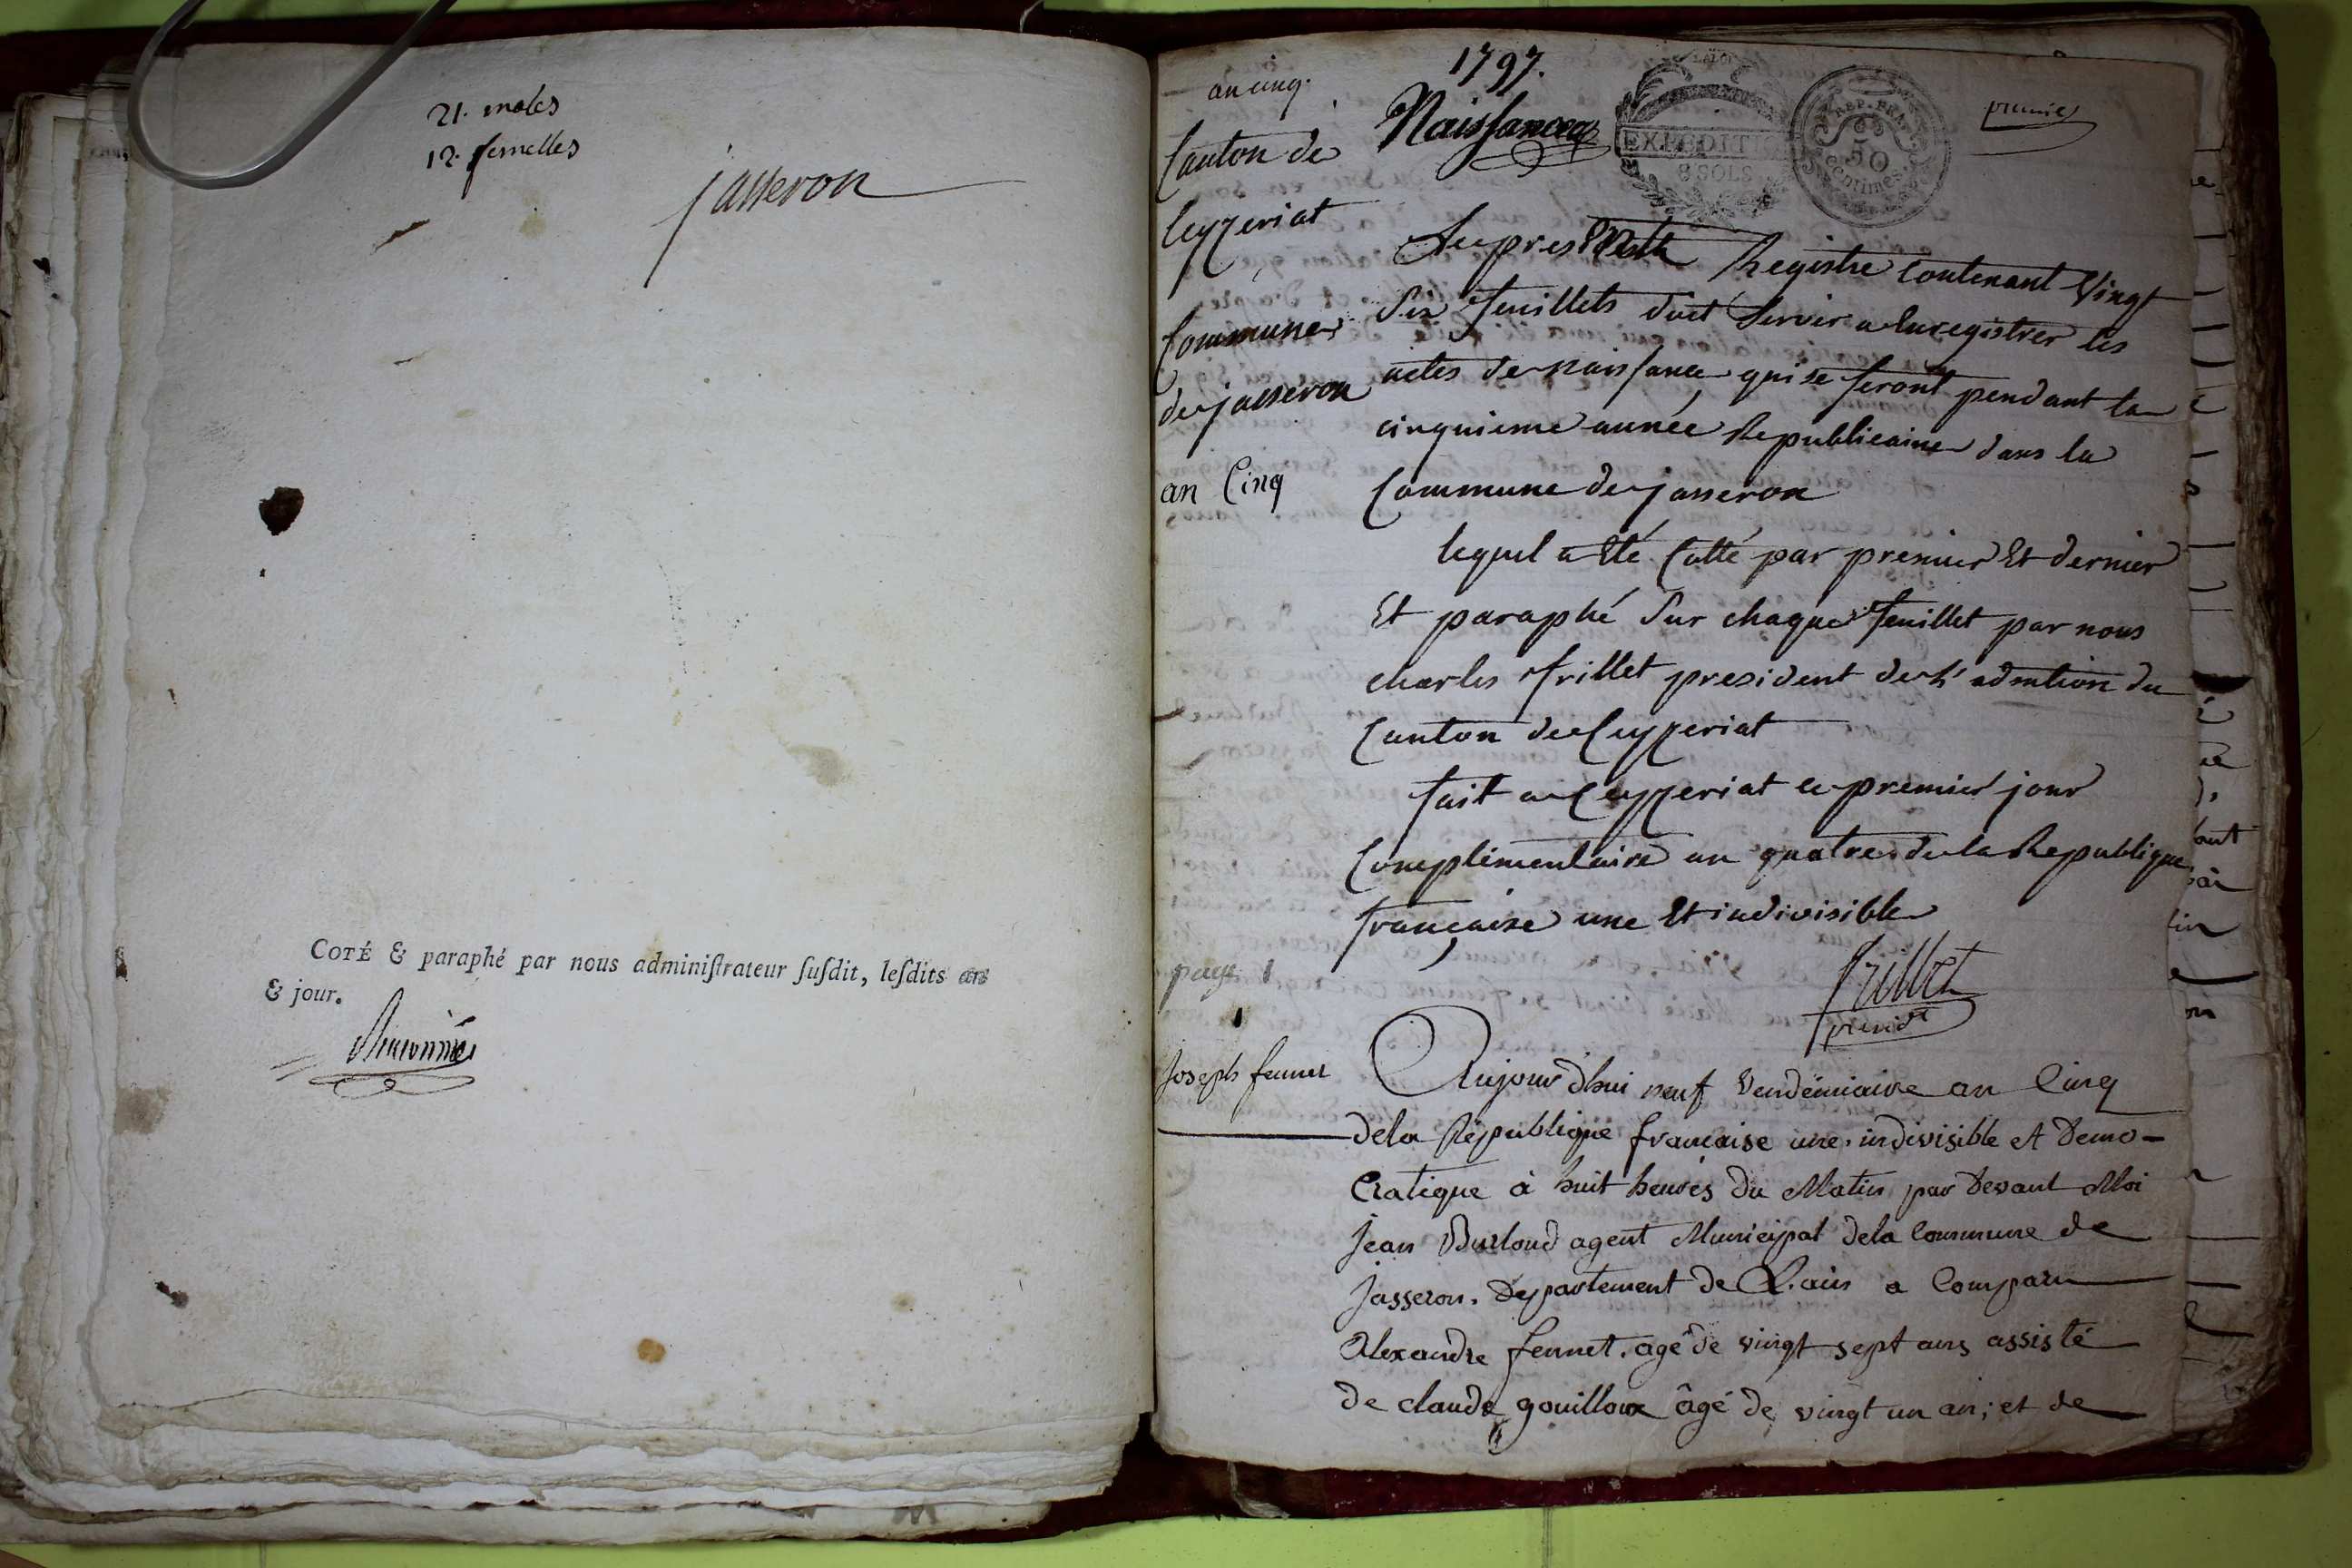 21. males
12. femelles
jasseron
COTÉ & paraphé par nous adminiſtrateur ſuſdit, leſdits an
& jour.
an cinq.
1797.
Naissances
EXPEDIT
8 SOLS
REP. FRA.
50
centimes
premier
Canton de
Ceyzeriat
Commune
de jasseron
an Cinq
Le present Registre contenant Vingt
Six feuillets doit Servir a Enregistrer les
actes de naissance qui se feront pendant la
cinquieme année Republicaine dans la
Commune de jasseron
lequel a Eté Cotté par premier Et dernier
Et paraphé Sur chaque feuillet par nous
charles frillet president de l'admtion du
Canton de Ceyzeriat
fait a Ceyzeriat le premier jour
Complementaire an quatre de la Republique
française une Et indivisible
frillet
presidt
page 1
1
Joseph fennet
Aujourd'hui neuf Vendémiaire an Cinq
dela République française une, indivisible et Démo-
Cratique à huit heures du Matin, par Devant Moi
Jean Burloud agent Municipal dela Commune de
Jasseron. Département de L'ain a Comparu
Alexandre fennet, agé de vingt sept ans assisté
de claude gouilloux âgé de vingt un an; et de